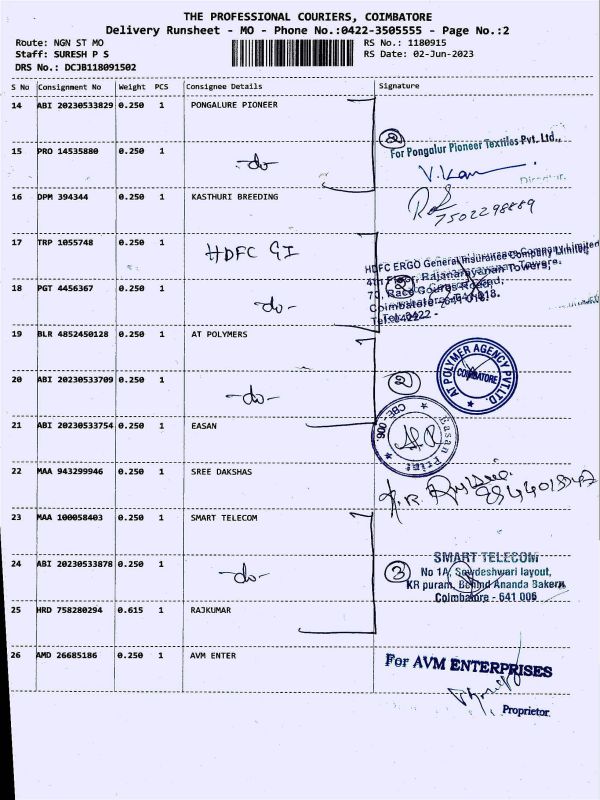 THE PROFESSIONAL COURIERS, COIMBATORE
Delivery Runsheet - MO - Phone No.:0422-3505555 - Page No.:2
Route: NGN ST MO
RS No.: 1180915
Staff: SURESH P S
RS Date: 02-Jun-2023
DRS No.: DCJB118091502
S No Consignment No Weight PCS Consignee Details Signature
14 ABI 20230533829 0.250 1 PONGALURE PIONEER
2
For Pongalur Pioneer Textiles Pvt. Ltd.,
15 PRO 14535880 0.250 1 -do-
Director.
16 DPM 394344 0.250 1 KASTHURI BREEDING
7502298889
17 TRP 1055748 0.250 1 HDFC GI
HDFC ERGO General Insurance Company Limited
4th Floor, Rajanarayanan Towers,
18 PGT 4456367 0.250 1 -do-
2
Coimbatore - 641 018.
Tel: 0422 -
19 BLR 4852450128 0.250 1 AT POLYMERS
AT POLYMER AGENCY PVT. LTD.
COIMBATORE
20 ABI 20230533709 0.250 1 -do-
2
21 ABI 20230533754 0.250 1 EASAN
Easan Print
CBE - 006
22 MAA 943299946 0.250 1 SREE DAKSHAS
23 MAA 100058403 0.250 1 SMART TELECOM
24 ABI 20230533878 0.250 1 -do-
3
SMART TELECOM
No 1A, Sowdeshwari layout,
KR puram, Behind Ananda Bakery,
Coimbatore - 641 006
25 HRD 758280294 0.615 1 RAJKUMAR
26 AMD 26685186 0.250 1 AVM ENTER
For AVM ENTERPRISES
Proprietor